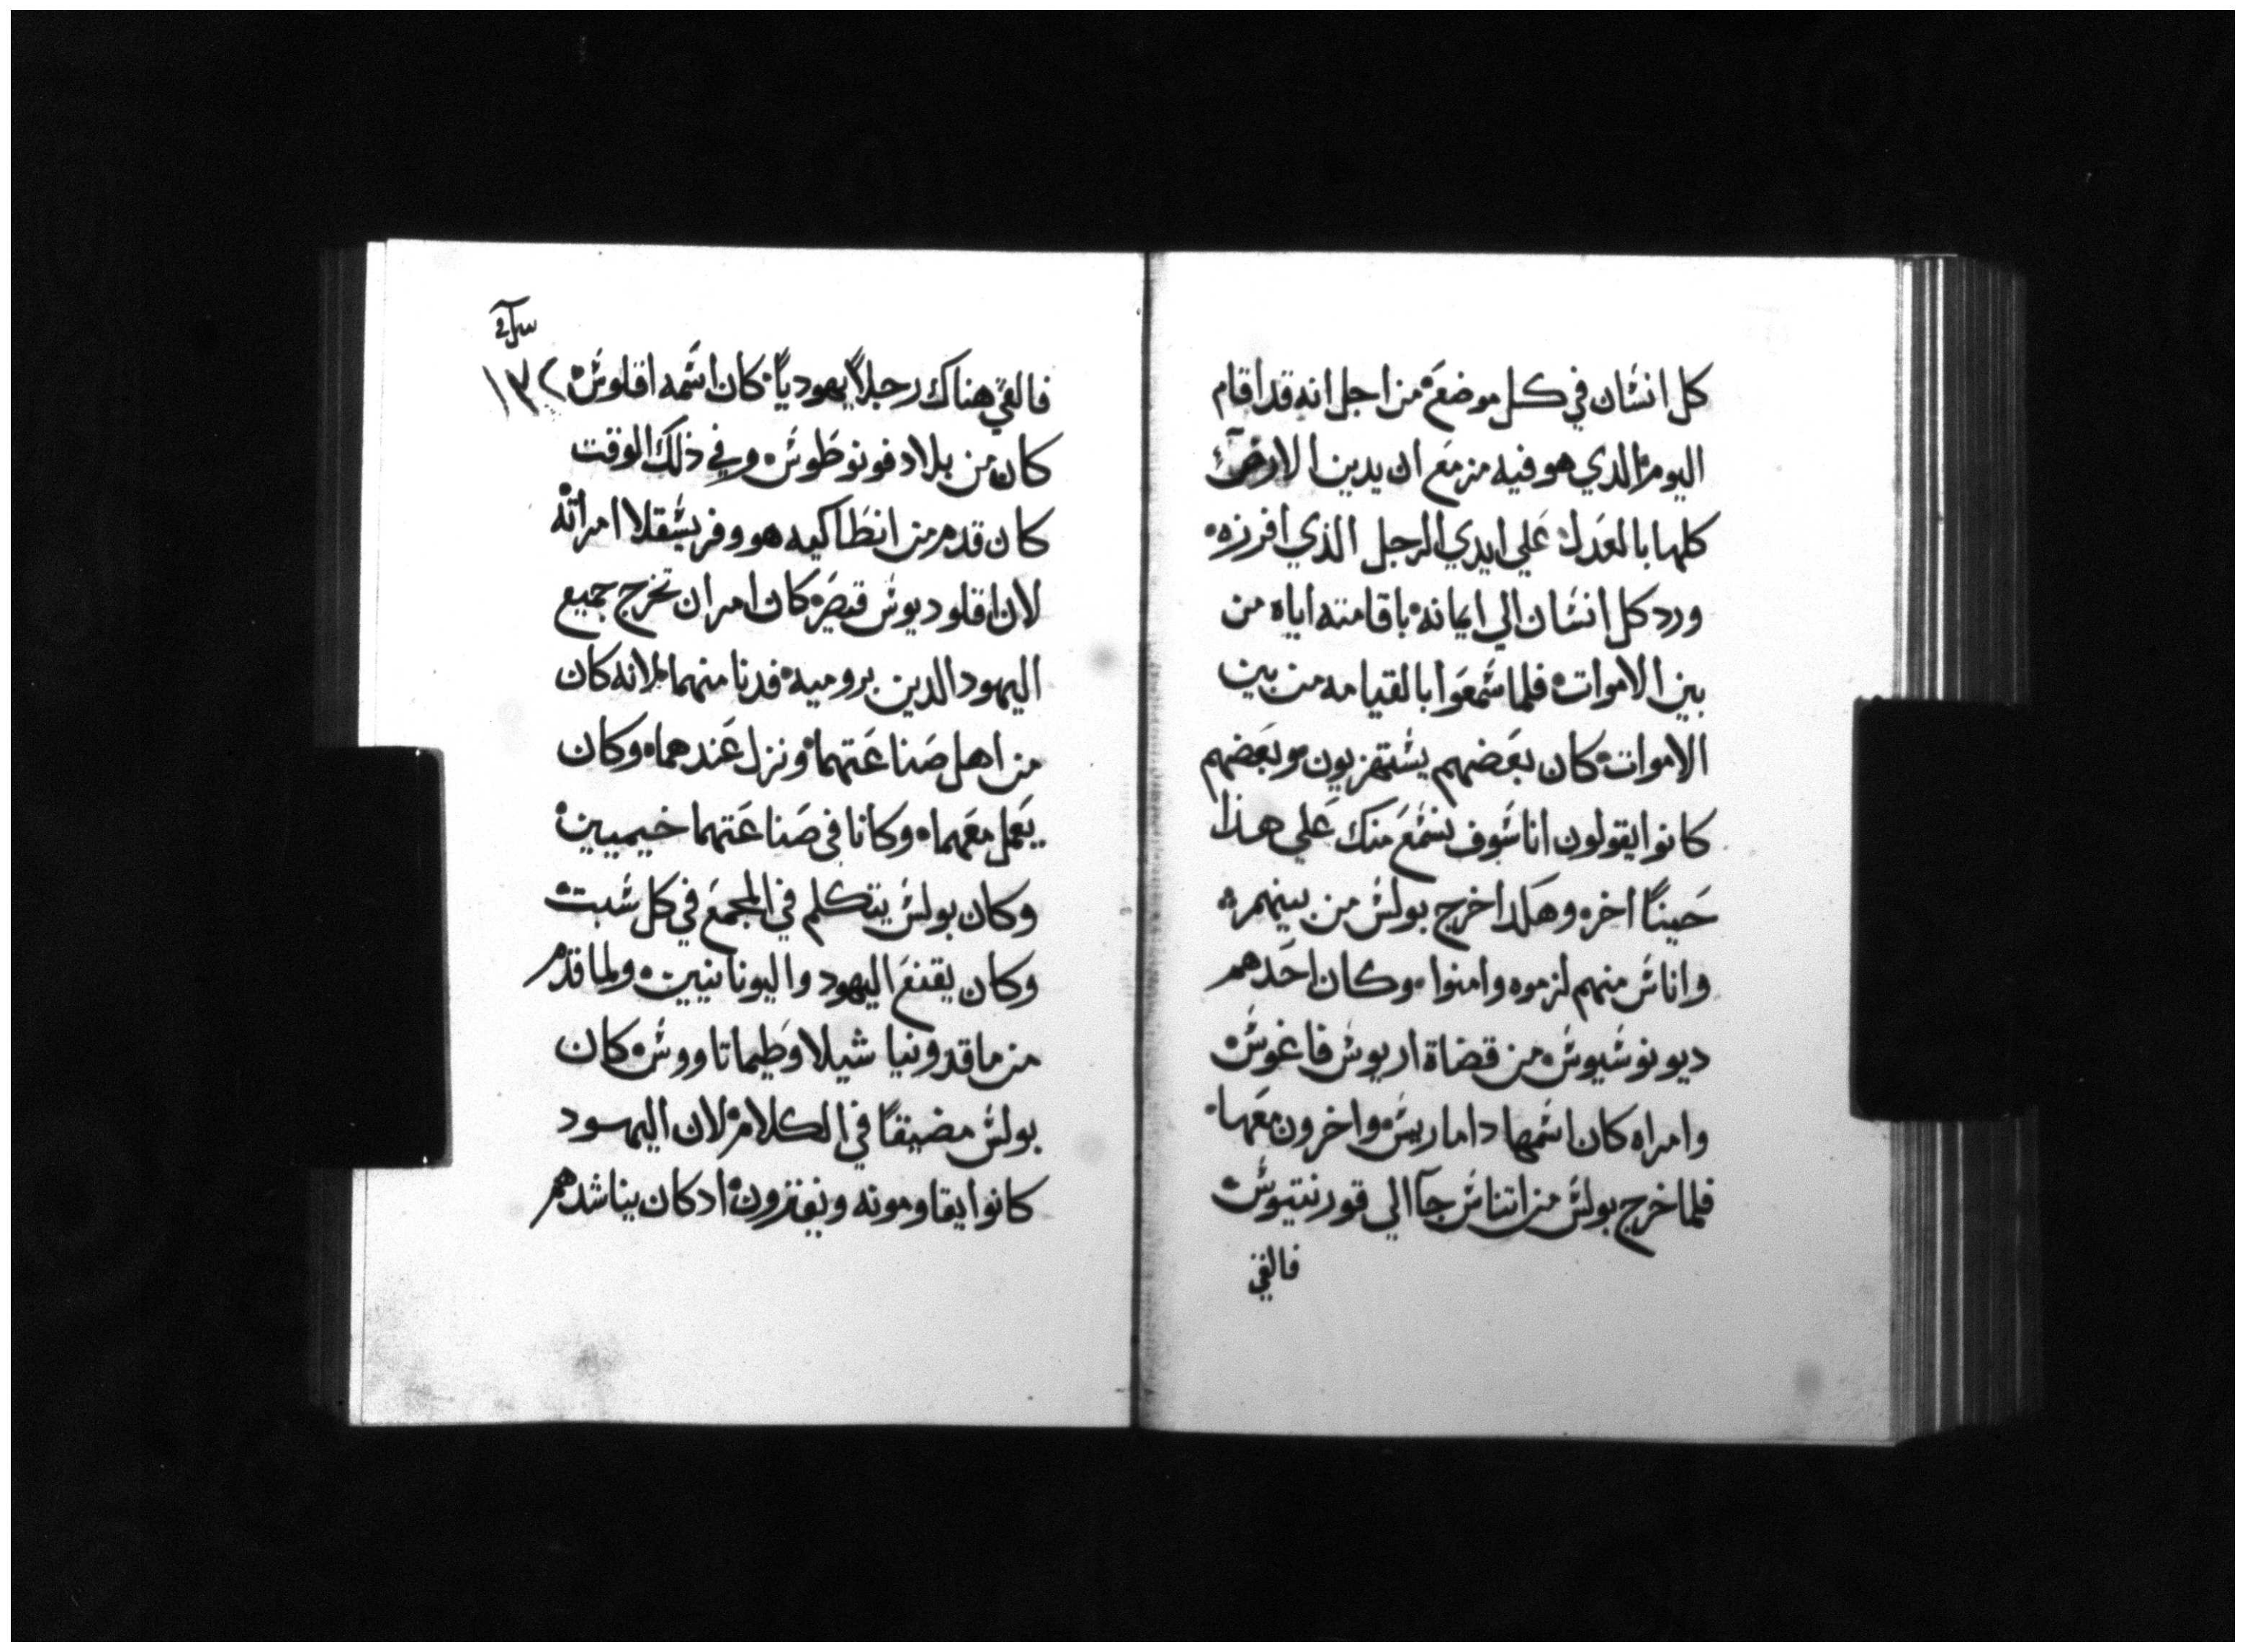 كل انشان في كل موضع من اجل انه قد اقام
اليوم الدي هو فيه مزمع ان يدين الارض
كلها بالعدل علي ايدي الرجل الذي افرزه
ورد كل انشان الي ايمانه باقامته اياه من
بين الاموات فلما شمعوا بالقيامه من بين
الاموات كان بعضهم يشتهزيون وبعضهم
كانوا يقولون انا شوف نشمع منك علي هذا
حينًا اخر وهكدا خرج بولش من بينهم
واناش منهم لزموه وامنوا وكان احدهم
ديونوشيوش من قضاة اريوش فاغوش
وامراه كان اشمها داماريش واخرون معها
فلما خرج بولش من اتناش جآ الي قورنتيوش
فالفي
١٣٢
فالفي هناك رجلاً يهودياً كان اشمه اقلوش
كان من بلاد فونوطوش وفي ذلك الوقت
كان قدم من انطاكيه هو وفريشقلا امراته
لان اقلوديوش قيصر كان امر ان تخرج جميع
اليهود الدين بروميه فدنا منهما لانه كان
من اهل صناعتهما ونزل عندهما وكان
يعمل معهما وكانا في صناعتهما خيميين
وكان بولش يتكلم في المجمع في كل شبت
وكان يقنع اليهود واليونانيين ولما قدم
من ماقدونيا شيلا وطيماتاووش كان
بولش مضيقًا في الكلام لان اليهود
كانوا يقاومونه ويفترون ادكان يناشدهم